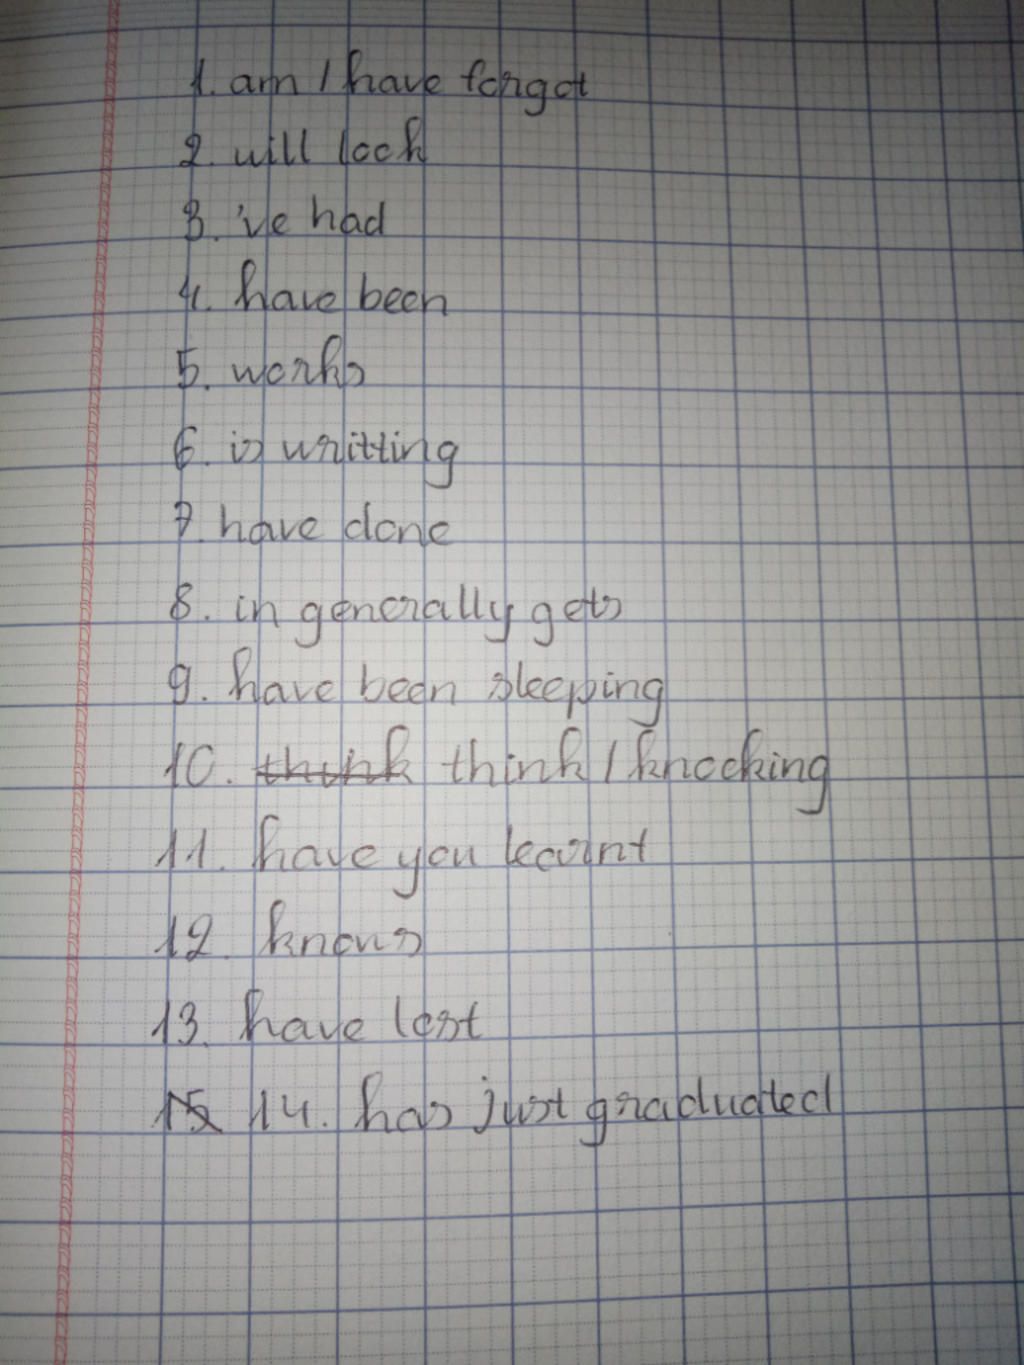 1. am / have forgot
2. will look
3. 've had
4. have been
5. works
6. is writting
7. have done
8. in generally gets
9. have been sleeping
10. think think / knocking
11. have you learnt
12. knows
13. have lost
15 14. has just graduated